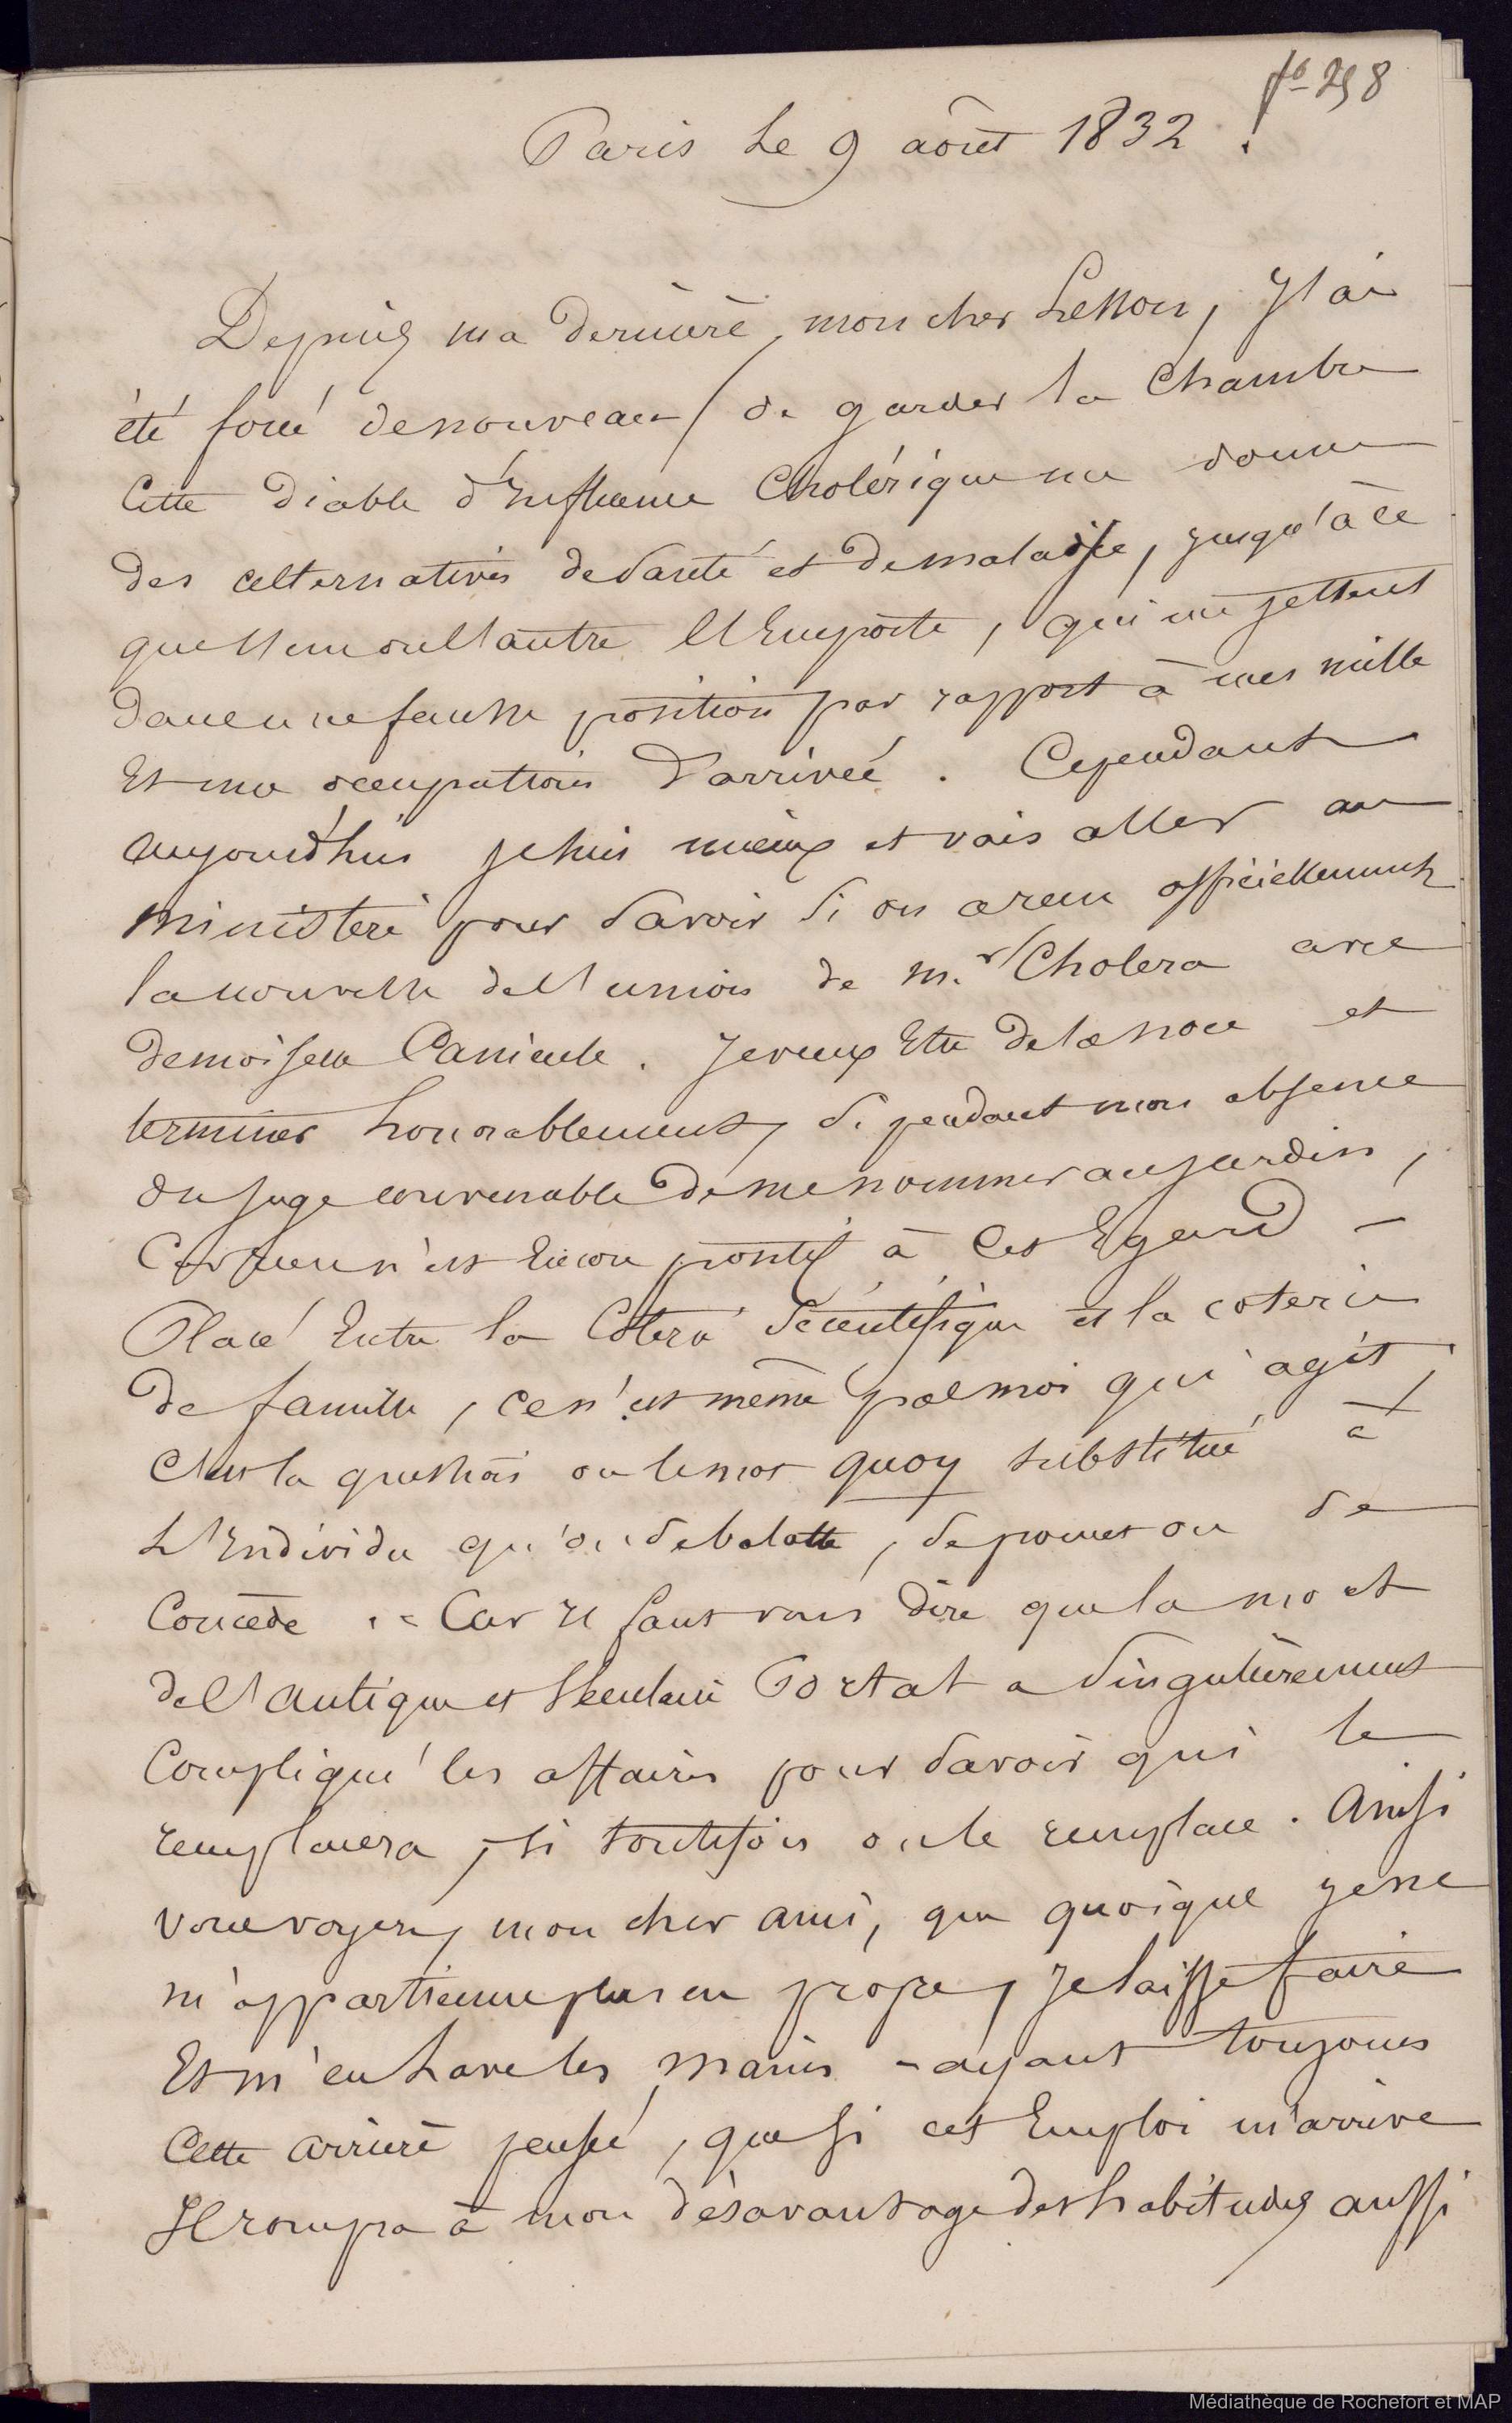 fo 298
Paris le 9 août 1832.
Depuis ma dernière, mon cher Lesson, J'ai
été forcé de nouveau de garder la Chambre
Cette Diable d'Influence Cholérique me donne
des alternatives de Santé et de maladie, jusqu'à ce
que l'un ou l'autre l'Emporte, qui me jettent
dans une fausse position par rapport à mes mille
Et une occupations d'arrivée. Cependant
aujourd'hui je suis mieux et vais aller au
ministère pour Savoir Si on a reçu officiellement
la nouvelle de l'union de M.r Cholera avec
demoiselle Canicule. Je veux Etre de la noce et
terminer honorablement, Si pendant mon absence
on juge convenable de me nommer au jardin,
Car rien n'est Encore à Cet Egard —
Placé Entre la Coterie Scientifique et la coterie
de famille, ce n'est même pas moi qui agit,
C'est la question ou le mot quoy substitué à
L'Individu qu'on debalotte, de pour et de
Concède. = Car Il faut vous dire que la mort
de l'antique et Séculaire Portal a Singulièrement
Compliqué les affaires pour Savoir qui le
remplacera, si toutefois on le remplace. Ainsi
vous voyez, mon cher ami, que quoique je ne
m'appartienne plus en propre, Je laisse faire
Et m'en lave les mains - ayant toujours
Cette arrière pensée, que si cet Emploi m'arrive
Il rompra à mon désavantage des habitudes aussi
Médiathèque de Rochefort et MAP